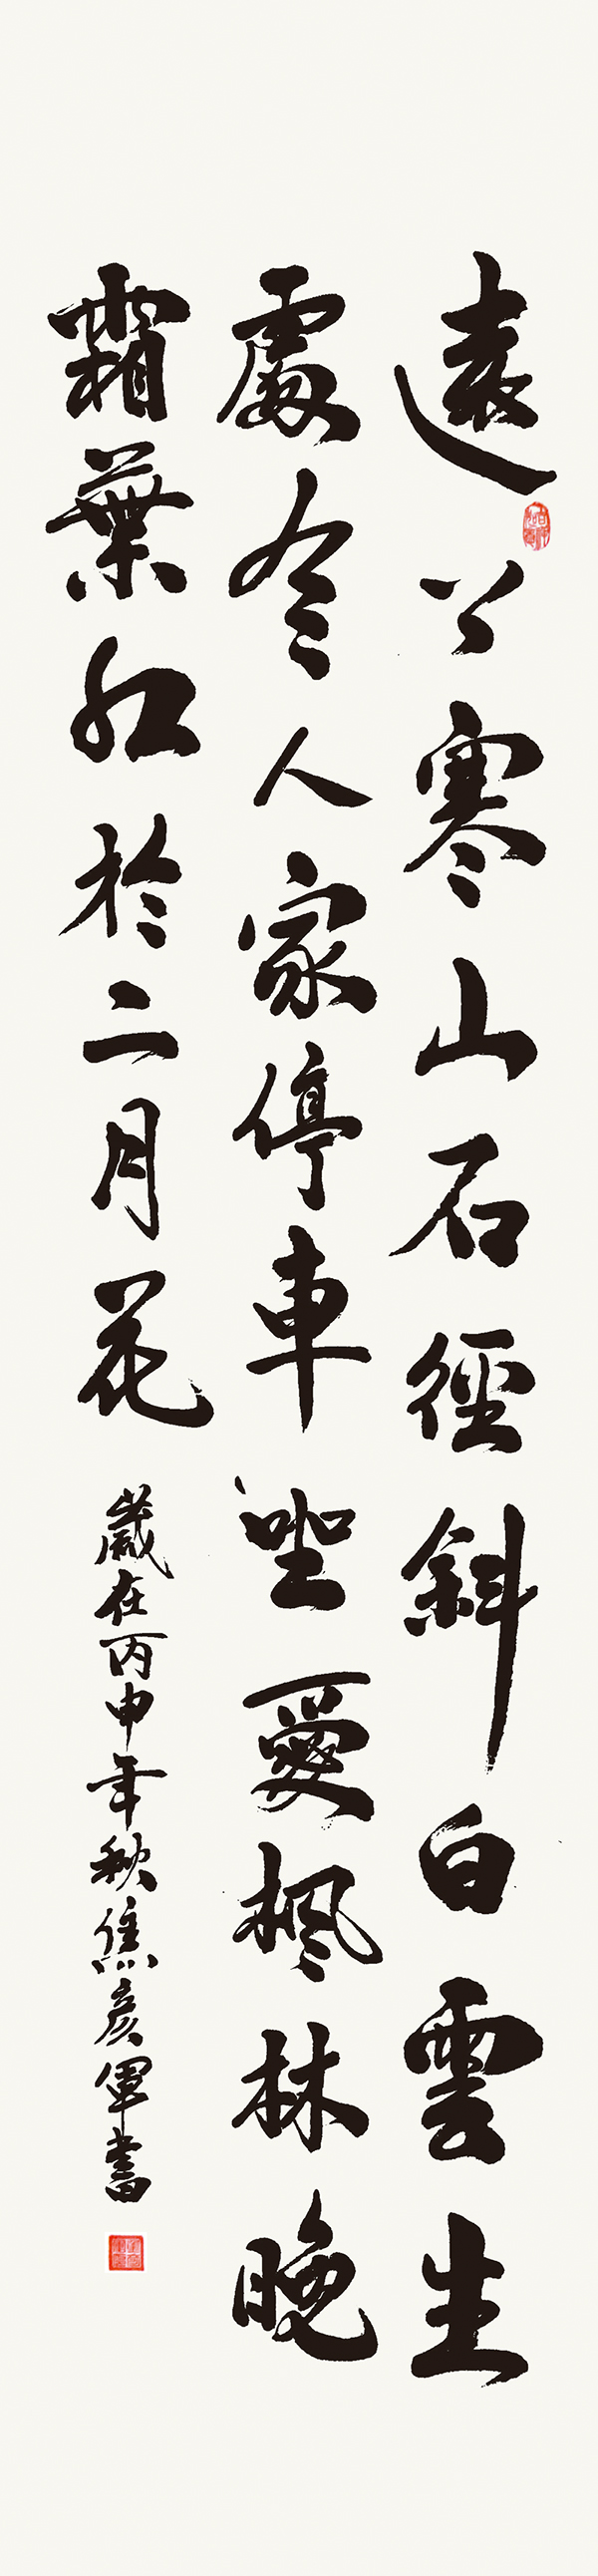 遠上寒山石徑斜白雲生
處有人家停車坐愛楓林晚
霜葉紅於二月花
歲在丙申年秋焦彦軍書